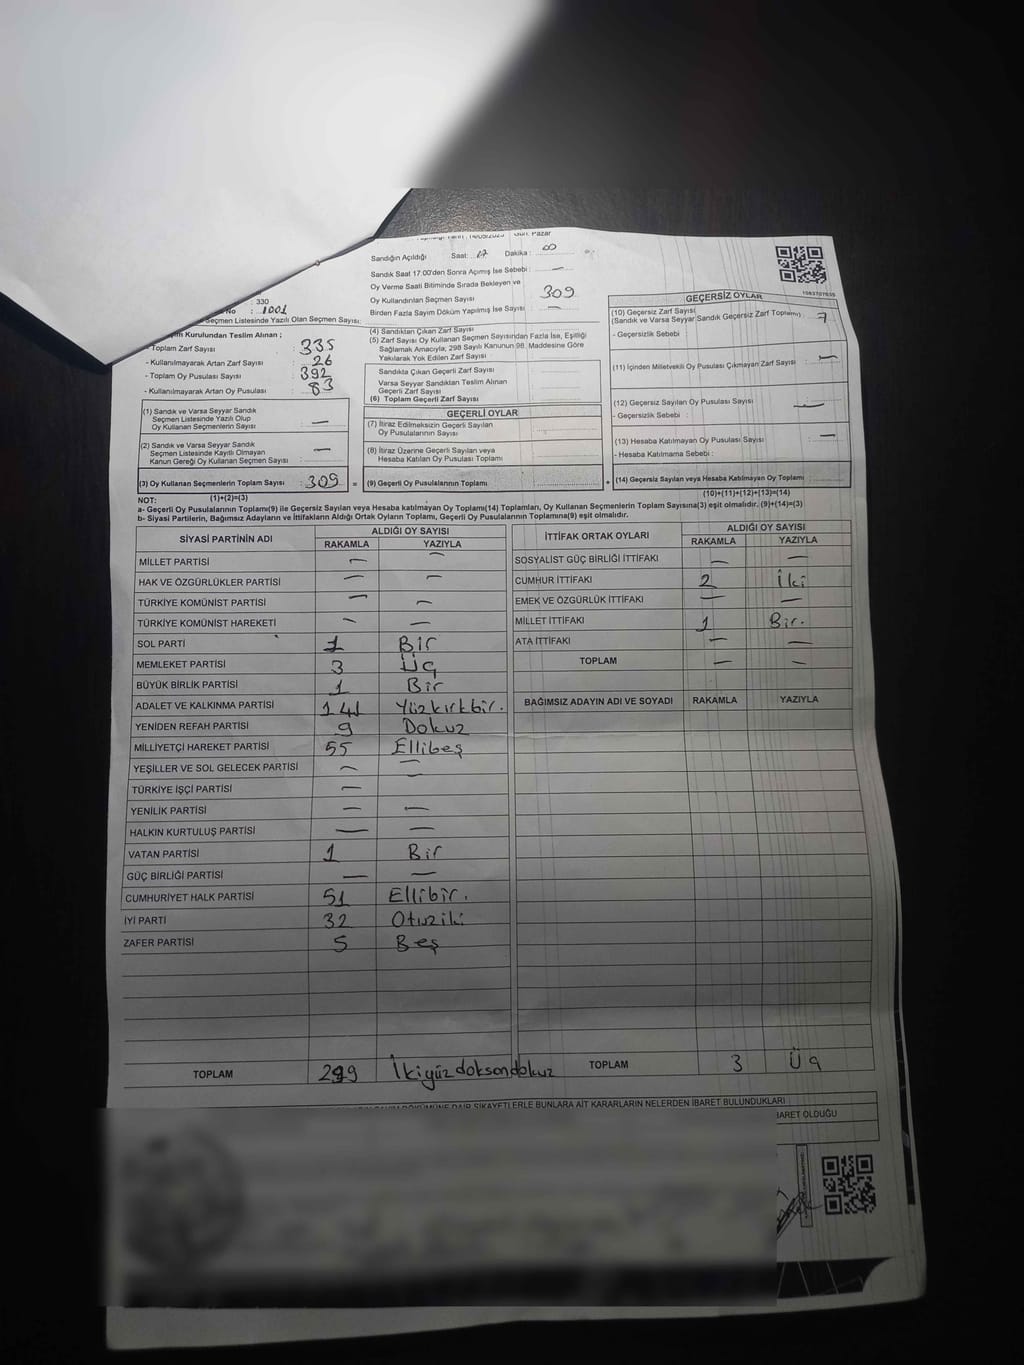 Gün: Pazar
Sandığın Açıldığı Saat: 17 Dakika: 00
Sandık Saat 17:00'den Sonra Açımış İse Sebebi: —
Oy Verme Saati Bitiminde Sırada Bekleyen ve
Oy Kullandırılan Seçmen Sayısı 309
Birden Fazla Sayım Döküm Yapılmış İse Sayısı : —
: 330
No : 1001
Seçmen Listesinde Yazılı Olan Seçmen Sayısı:
Kurulundan Teslim Alınan ;
Toplam Zarf Sayısı : 335
- Kullanılmayarak Artan Zarf Sayısı : 26
- Toplam Oy Pusulası Sayısı : 392
- Kullanılmayarak Artan Oy Pusulası : 83
(1) Sandık ve Varsa Seyyar Sandık
Seçmen Listesinde Yazılı Olup
Oy Kullanan Seçmenlerin Sayısı : —
(2) Sandık ve Varsa Seyyar Sandık
Seçmen Listesinde Kayıtlı Olmayan
Kanun Gereği Oy Kullanan Seçmen Sayısı : —
(3) Oy Kullanan Seçmenlerin Toplam Sayısı : 309 =
(4) Sandıktan Çıkan Zarf Sayısı
(5) Zarf Sayısı Oy Kullanan Seçmen Sayısından Fazla İse, Eşitliği
Sağlamak Amacıyla; 298 Sayılı Kanunun 98. Maddesine Göre
Yakılarak Yok Edilen Zarf Sayısı
Sandıkta Çıkan Geçerli Zarf Sayısı
Varsa Seyyar Sandıktan Teslim Alınan
Geçerli Zarf Sayısı
(6) Toplam Geçerli Zarf Sayısı
GEÇERLİ OYLAR
(7) İtiraz Edilmeksizin Geçerli Sayılan
Oy Pusulalarının Sayısı
(8) İtiraz Üzerine Geçerli Sayılan veya
Hesaba Katılan Oy Pusulası Toplamı
(9) Geçerli Oy Pusulalarının Toplamı +
1093707035
GEÇERSİZ OYLAR
(10) Geçersiz Zarf Sayısı
(Sandık ve Varsa Seyyar Sandık Geçersiz Zarf Toplamı) : 7
- Geçersizlik Sebebi :
(11) İçinden Milletvekili Oy Pusulası Çıkmayan Zarf Sayısı : —
(12) Geçersiz Sayılan Oy Pusulası Sayısı : —
- Geçersizlik Sebebi :
(13) Hesaba Katılmayan Oy Pusulası Sayısı : —
- Hesaba Katılmama Sebebi :
(14) Geçersiz Sayılan veya Hesaba Katılmayan Oy Toplamı
NOT: (1)+(2)=(3) (10)+(11)+(12)+(13)=(14)
a- Geçerli Oy Pusulalarının Toplamı(9) ile Geçersiz Sayılan veya Hesaba katılmayan Oy Toplamı(14) Toplamları, Oy Kullanan Seçmenlerin Toplam Sayısına(3) eşit olmalıdır. (9)+(14)=(3)
b- Siyasi Partilerin, Bağımsız Adayların ve İttifakların Aldığı Ortak Oyların Toplamı, Geçerli Oy Pusulalarının Toplamına(9) eşit olmalıdır.
SİYASİ PARTİNİN ADI ALDIĞI OY SAYISI
RAKAMLA YAZIYLA
MİLLET PARTİSİ — —
HAK VE ÖZGÜRLÜKLER PARTİSİ — —
TÜRKİYE KOMÜNİST PARTİSİ — —
TÜRKİYE KOMÜNİST HAREKETİ — —
SOL PARTİ 1 Bir
MEMLEKET PARTİSİ 3 Üç
BÜYÜK BİRLİK PARTİSİ 1 Bir
ADALET VE KALKINMA PARTİSİ 141 Yüzkırkbir.
YENİDEN REFAH PARTİSİ 9 Dokuz
MİLLİYETÇİ HAREKET PARTİSİ 55 Ellibeş
YEŞİLLER VE SOL GELECEK PARTİSİ — —
TÜRKİYE İŞÇİ PARTİSİ — —
YENİLİK PARTİSİ — —
HALKIN KURTULUŞ PARTİSİ — —
VATAN PARTİSİ 1 Bir
GÜÇ BİRLİĞİ PARTİSİ — —
CUMHURİYET HALK PARTİSİ 51 Ellibir.
İYİ PARTİ 32 Otuziki
ZAFER PARTİSİ 5 Beş
TOPLAM 299 İkiyüzdoksandokuz
İTTİFAK ORTAK OYLARI ALDIĞI OY SAYISI
RAKAMLA YAZIYLA
SOSYALİST GÜÇ BİRLİĞİ İTTİFAKI — —
CUMHUR İTTİFAKI 2 İki
EMEK VE ÖZGÜRLÜK İTTİFAKI — —
MİLLET İTTİFAKI 1 Bir.
ATA İTTİFAKI — —
TOPLAM — —
BAĞIMSIZ ADAYIN ADI VE SOYADI RAKAMLA YAZIYLA
TOPLAM 3 Üç
DÖKÜMÜNE DAİR ŞİKAYETLERLE BUNLARA AİT KARARLARIN NELERDEN İBARET BULUNDUKLARI
İBARET OLDUĞU